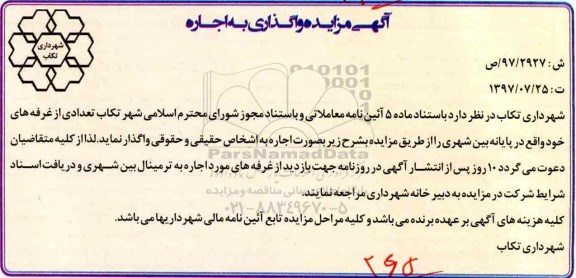 آگهی مزایده واگذاری به اجاره
شهرداری
تکاب
ش: ۹۷/۲۹۲۷/ص
ت: ۱۳۹۷/۰۷/۲۵
شهرداری تکاب در نظر دارد باستناد ماده ۵ آئین نامه معاملاتی و باستناد مجوز شورای محترم اسلامی شهر تکاب تعدادی از غرفه های
خود واقع در پایانه بین شهری را از طریق مزایده بشرح زیر بصورت اجاره به اشخاص حقیقی و حقوقی واگذار نماید. لذا از کلیه متقاضیان
دعوت می گردد ۱۰ روز پس از انتشار آگهی در روزنامه جهت بازدید از غرفه های مورد اجاره به ترمینال بین شهری و دریافت اسناد
شرایط شرکت در مزایده به دبیر خانه شهرداری مراجعه نمایند.
کلیه هزینه های آگهی بر عهده برنده می باشد و کلیه مراحل مزایده تابع آئین نامه مالی شهرداریها می باشد.
شهرداری تکاب
ParsNamadData
۰۲۱-۸۸۳۴۹۶۷۰-۵